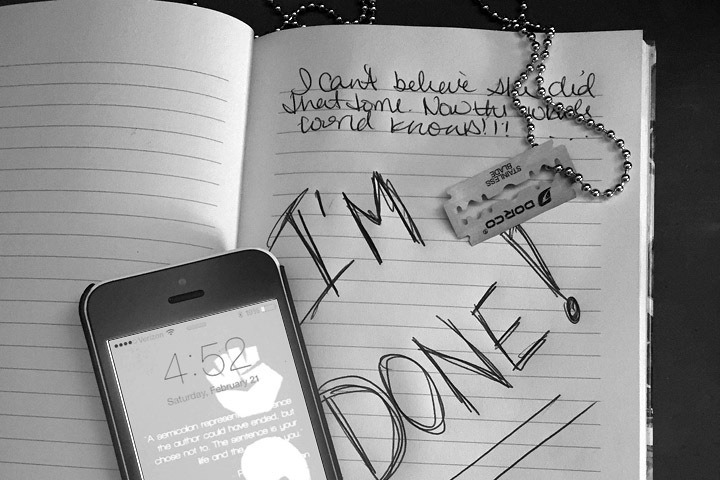 I can't believe she did
that to me. Now the whole
world knows!!!
STAINLESS
BLADE
DORCO®
I'M
DONE!
Verizon
4:52
Saturday, February 21
"A semicolon represents sentence
the author could have ended, but
chose not to. The sentence is your
life and the you."